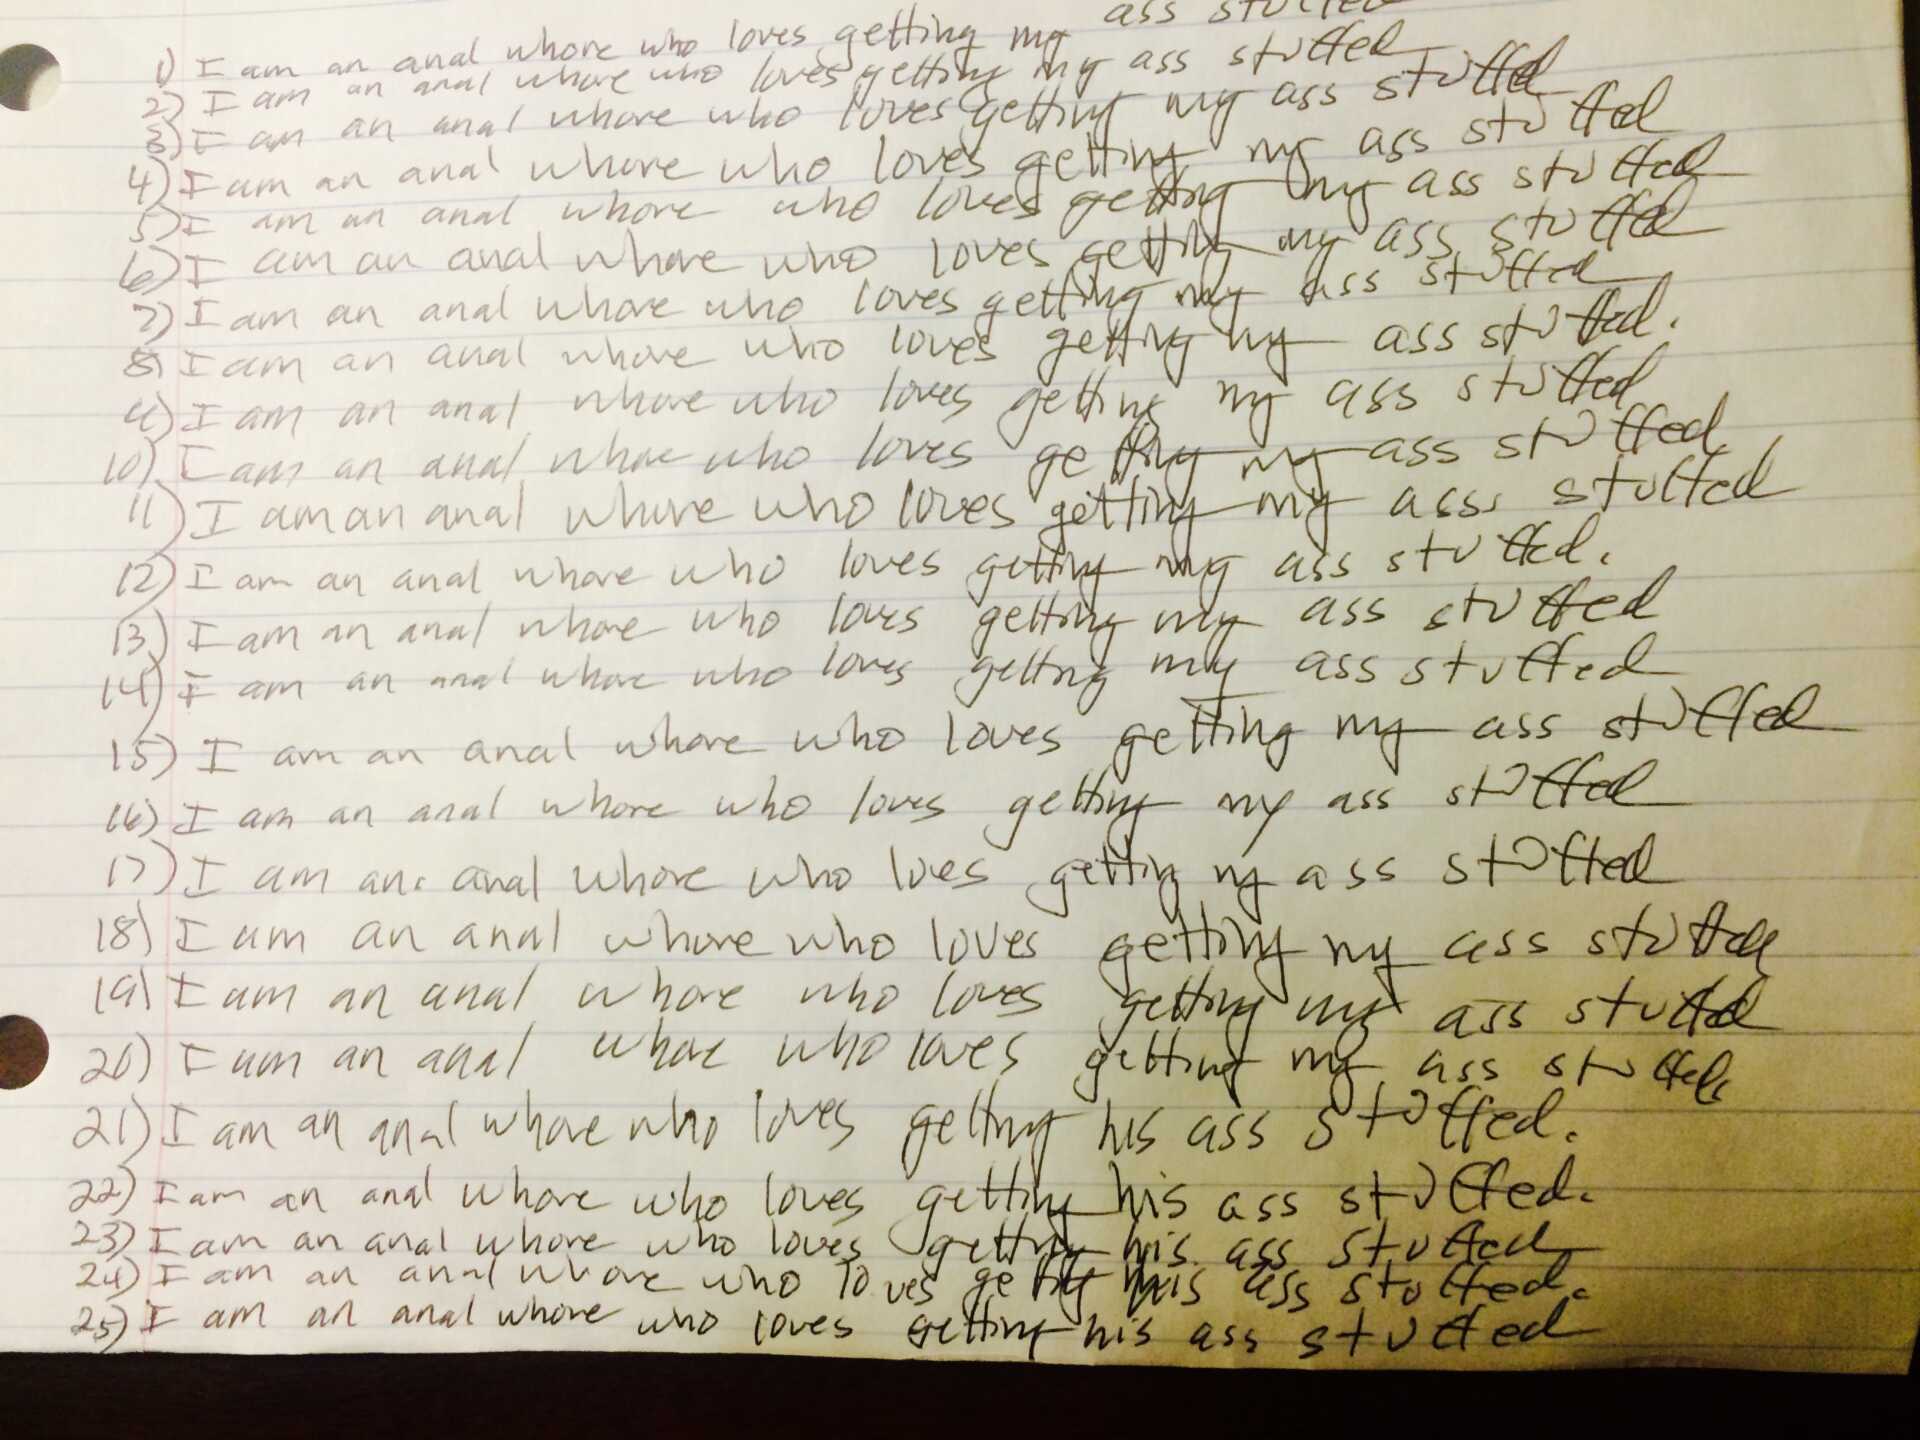 1) I am an anal whore who loves getting my ass stuffed
2) I am an anal whore who loves getting my ass stuffed
3) I am an anal whore who loves getting my ass stuffed
4) I am an anal whore who loves getting my ass stuffed
5) I am an anal whore who loves getting my ass stuffed
6) I am an anal whore who loves getting my ass stuffed
7) I am an anal whore who loves getting my ass stuffed
8) I am an anal whore who loves getting my ass stuffed.
9) I am an anal whore who loves getting my ass stuffed
10) I am an anal whore who loves getting my ass stuffed.
11) I am an anal whore who loves getting my ass stuffed
12) I am an anal whore who loves getting my ass stuffed.
13) I am an anal whore who loves getting my ass stuffed
14) I am an anal whore who loves getting my ass stuffed
15) I am an anal whore who loves getting my ass stuffed
16) I am an anal whore who loves getting my ass stuffed
17) I am an anal whore who loves getting my ass stuffed
18) I am an anal whore who loves getting my ass stuffed
19) I am an anal whore who loves getting my ass stuffed
20) I am an anal whore who loves getting my ass stuffed.
21) I am an anal whore who loves getting his ass stuffed.
22) I am an anal whore who loves getting his ass stuffed.
23) I am an anal whore who loves getting his ass stuffed
24) I am an anal whore who loves getting his ass stuffed.
25) I am an anal whore who loves getting his ass stuffed